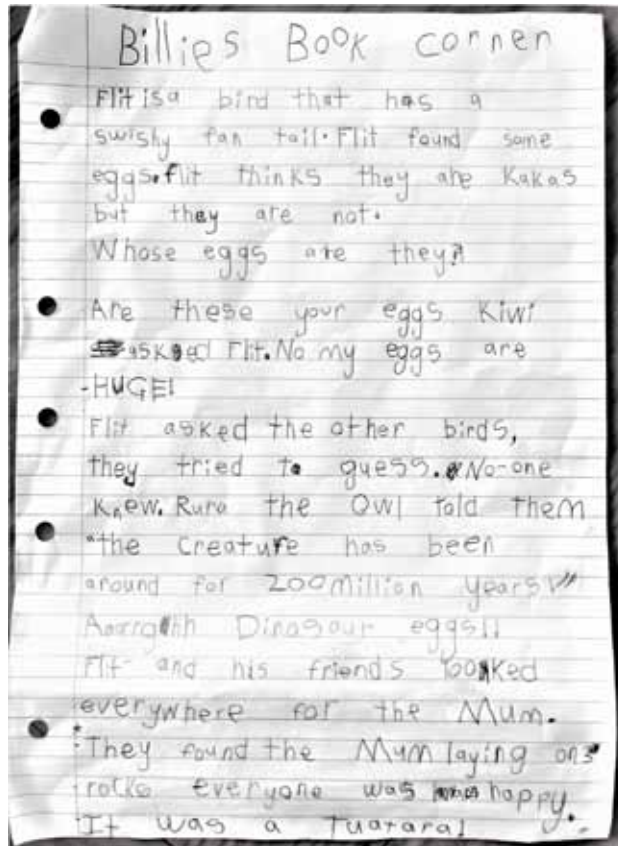 Billies Book cornner
Flit is a bird that has a
swishy fan tail. Flit found some
eggs. flit thinks they are Kakas
but they are not.
Whose eggs are they?
Are these your eggs Kiwi
asked Flit. No my eggs are
HUGE!
Flit asked the other birds,
they tried to guess. No-one
Knew. Ruru the Owl told them
"the creature has been
around for 200 million years!"
Aaarrghh Dinosaur eggs!!
Flit and his friends looked
everywhere for the Mum.
They found the Mum laying on
rocks everyone was happy.
It was a Tuatara!